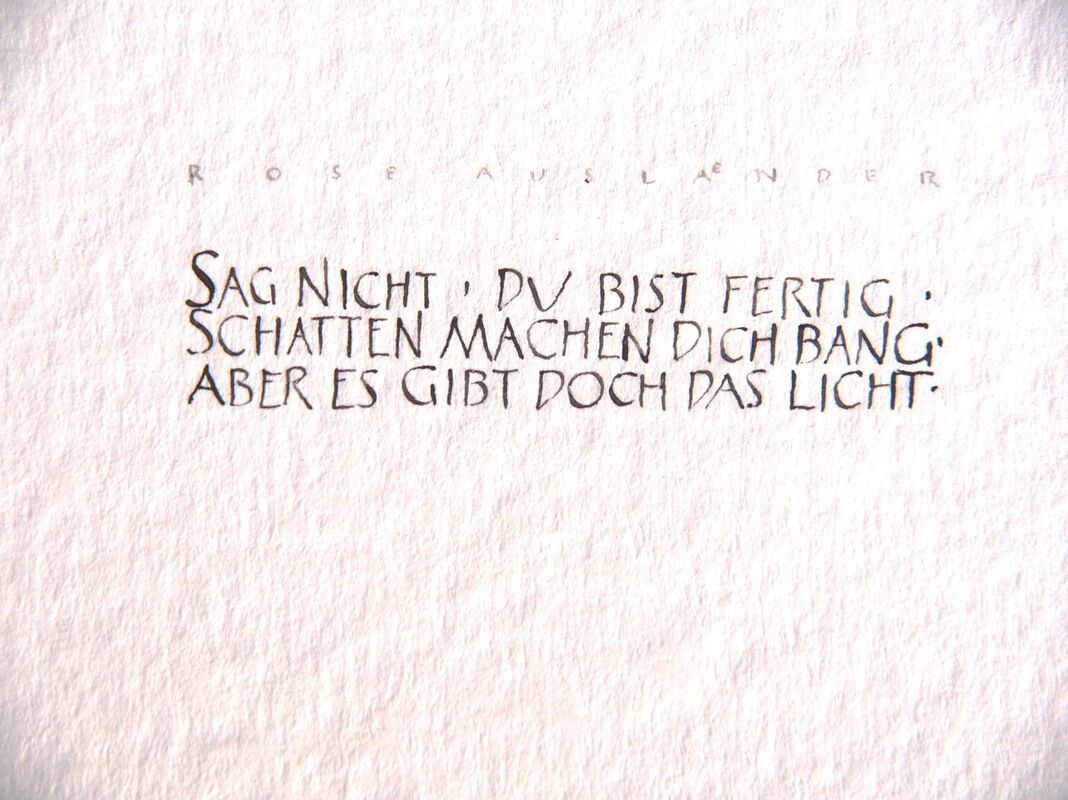 ROSE AUSLAENDER
SAG NICHT · DU BIST FERTIG ·
SCHATTEN MACHEN DICH BANG·
ABER ES GIBT DOCH DAS LICHT·